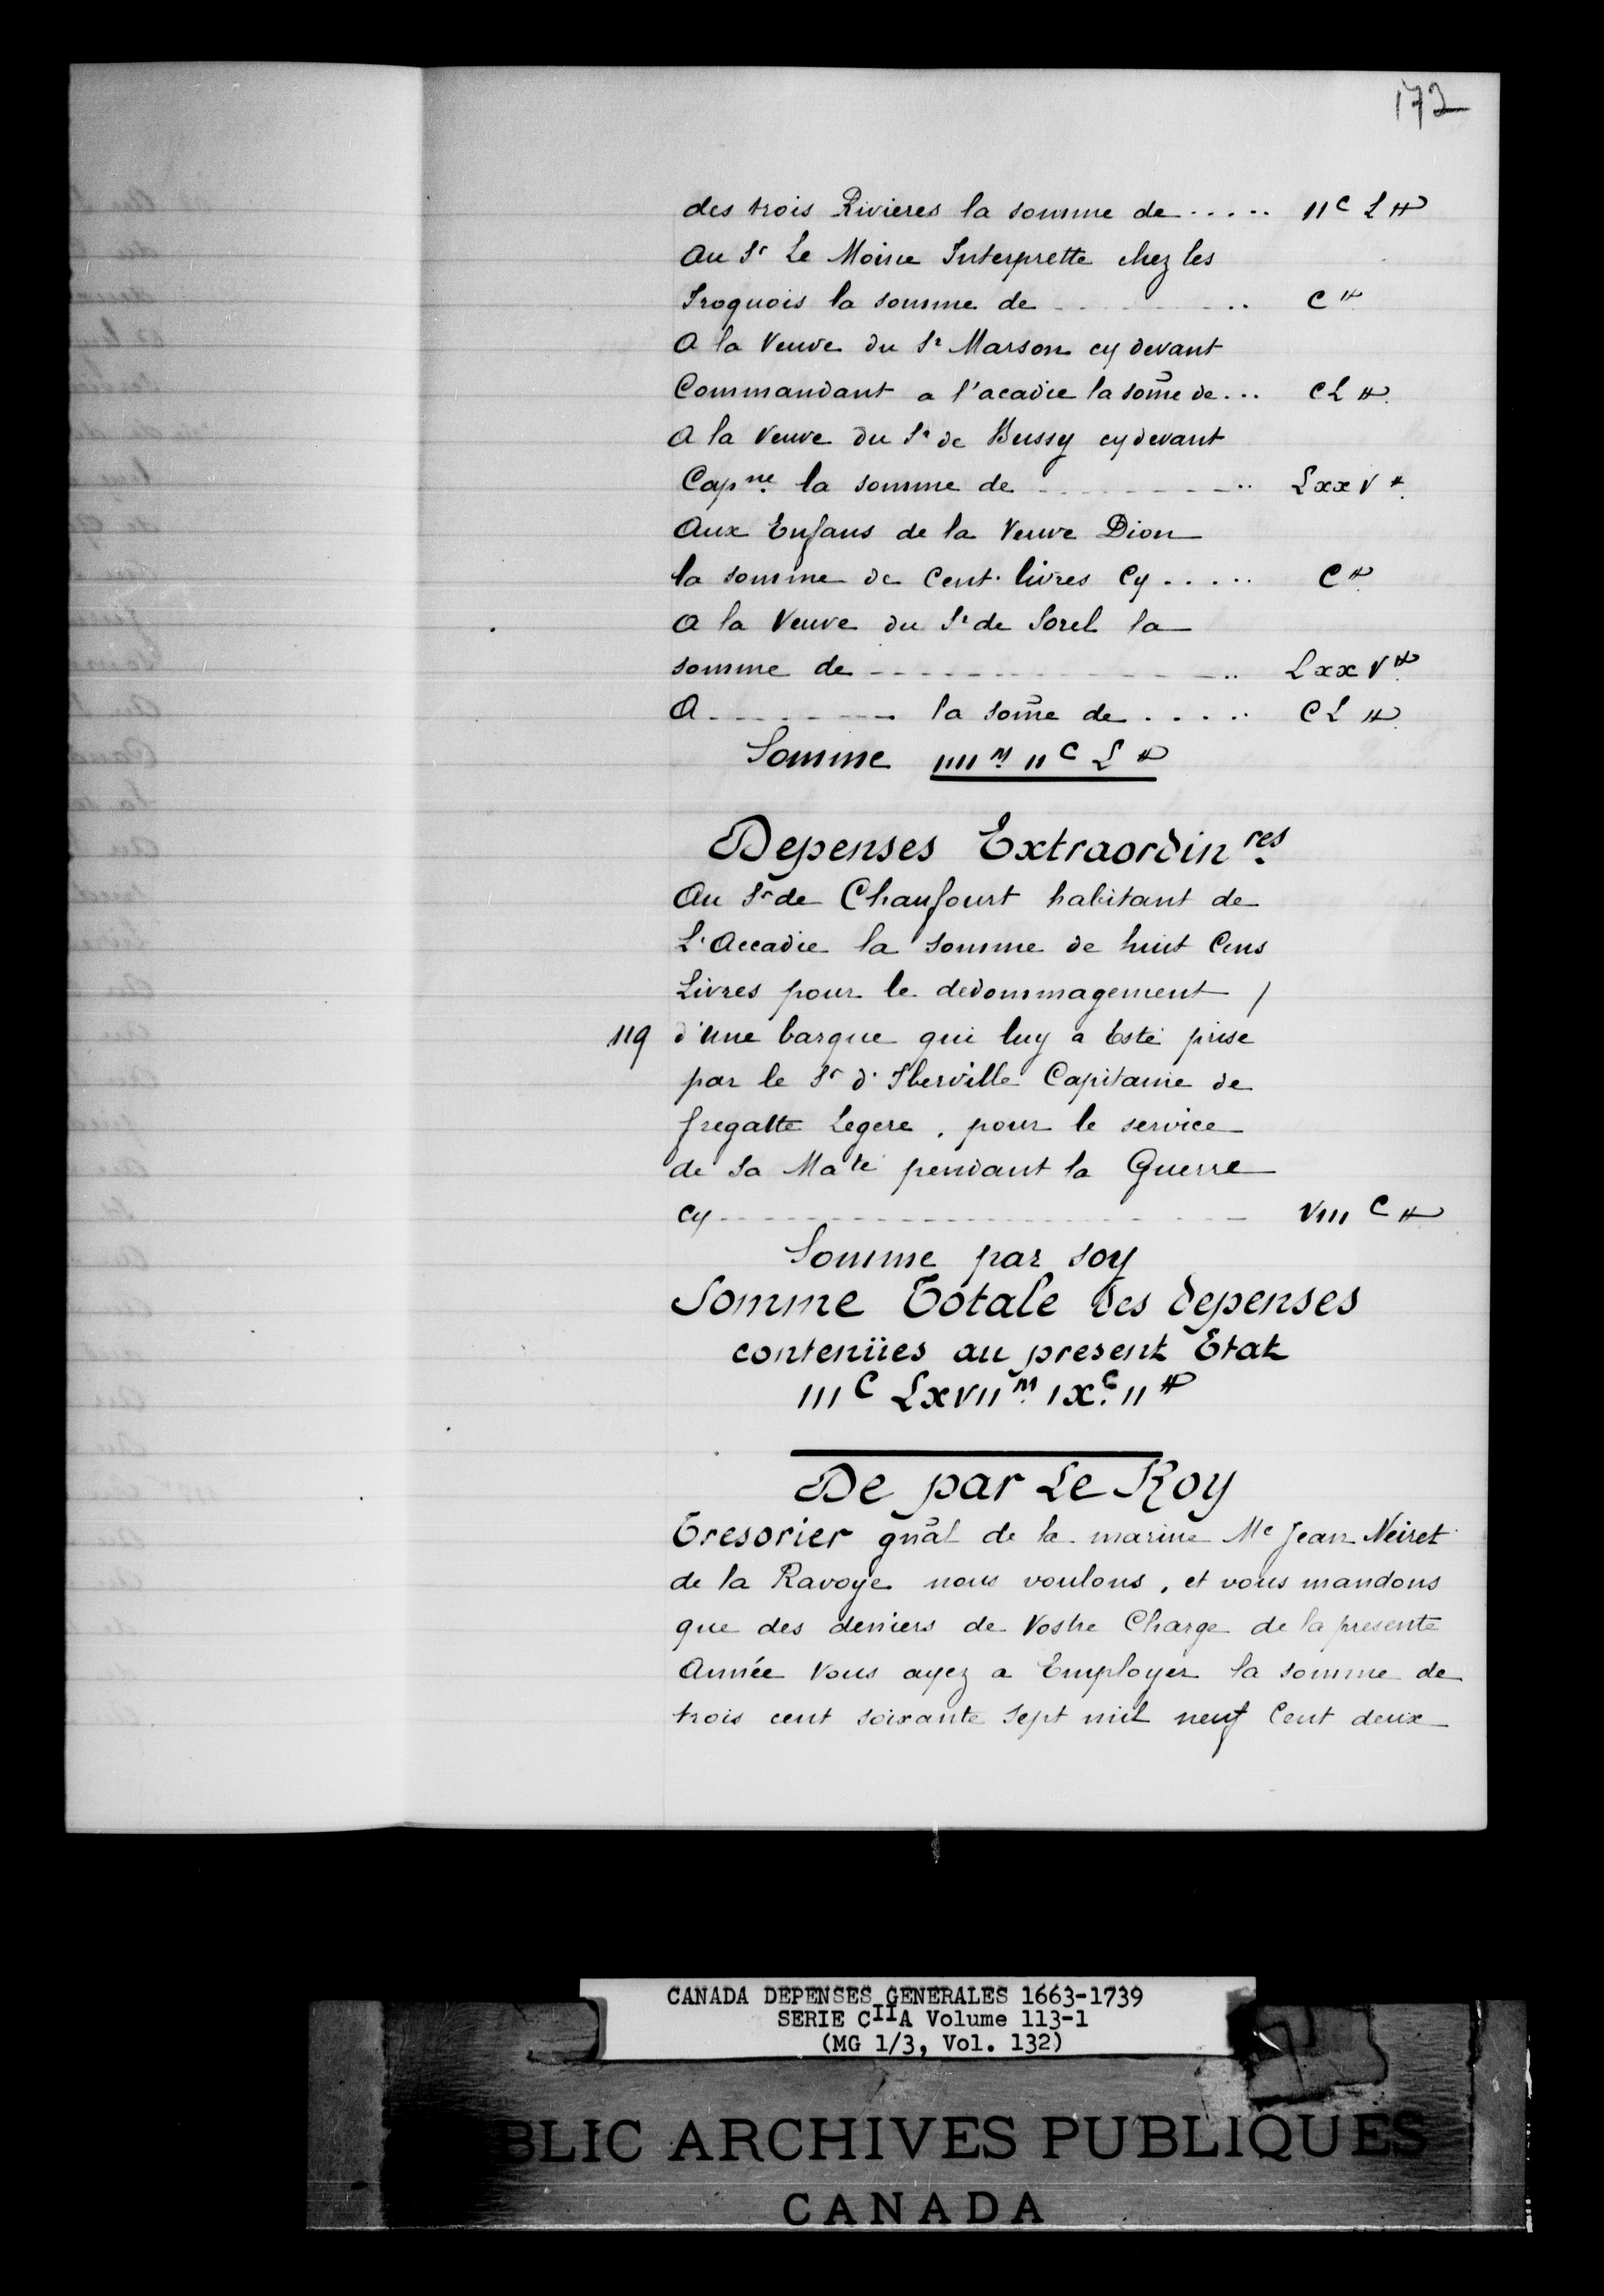 172
des trois Rivieres la somme de ..... IIC L ₶
Au Sr Le Moine Interprette chez les
Iroquois la somme de .......... C ₶
A la Veuve du Sr Marson cy devant
Commandant a l'acadie la som̃e de ... CL ₶
A la Veuve du Sr de Bussy cy devant
Capne la somme de .......... LxxV ₶
Aux Enfans de la Veuve Dion
la somme de Cent livres Cy ..... C ₶
A la Veuve du Sr de Sorel la
somme de .......... LxxV ₶
A .......... la som̃e de ..... CL ₶
Somme IIII M II C L ₶
Depenses Extraordinres
Au Sr de Chaufourt habitant de
L'Accadie la somme de huit Cens
Livres pour le dedommagement /
119 d'une barque qui luy a Esté prise
par le Sr d'Iberville Capitaine de
fregatte Legere, pour le service
de Sa Maté pendant la Guerre
Cy .......... VIII C ₶
Somme par soy
Somme Totale des depenses
contenües au present Etat
III C LxVII m IX C II ₶
De par Le Roy
Tresorier gñal de la marine Me Jean Neiret
de la Ravoye nous voulons, et vous mandons
que des deniers de Vostre Charge de la presente
Année Vous ayez a Employer la somme de
trois cent soixante Sept mil neuf Cent deux
CANADA DEPENSES GENERALES 1663-1739
SERIE CIIA Volume 113-1
(MG 1/3, Vol. 132)
BLIC ARCHIVES PUBLIQUES
CANADA